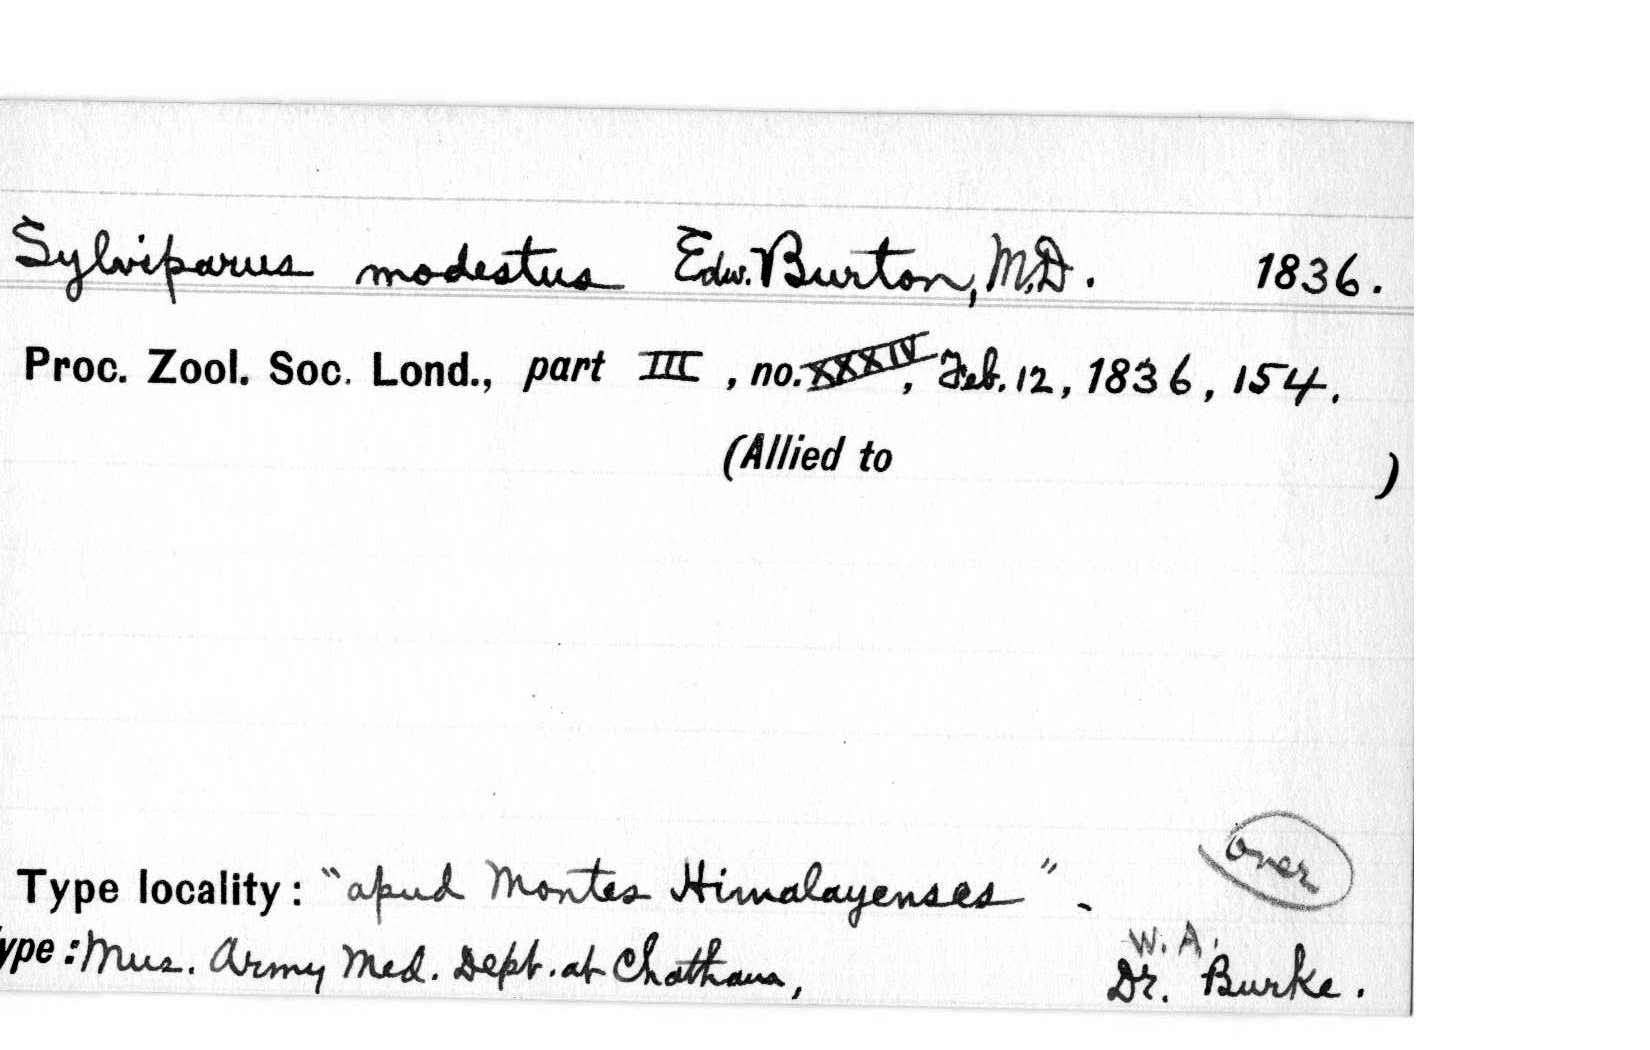 Sylviparus modestus Edw. Burton, M.D. 1836.
Proc. Zool. Soc. Lond., part III, no. XXXIV, Feb. 12, 1836, 154.
(Allied to )
over
Type locality: "apud Montes Himalayenses".
W. A.
ype: Mus. Army Med. Dept. at Chatham, Dr. Burke.